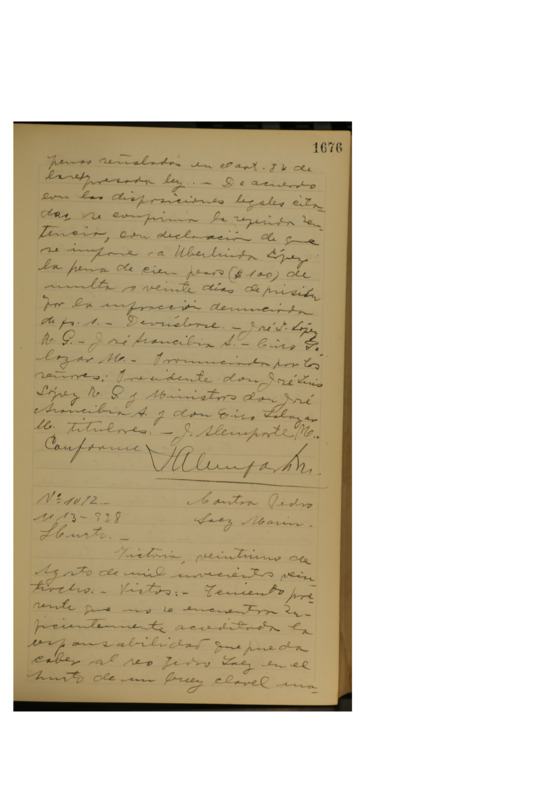 1676
penas señaladas en el art. 86 de
la expresada ley. - De acuerdo
con las disposiciones legales cita-
das, se confirma la referida sen-
tencia, con declaración de que
se impone a Uberlinda López
la pena de cien pesos ($ 100) de
multa o veinte días de prisión
por la infracción denunciada
de fs. 1. - Devuélvase. - José L. López
R. G. - José Arancibia A. - Ciro Sa-
lazar M. - Pronunciada por los
señores: Presidente don José Luis
López R. G. y Ministros don José
Arancibia A. y don Ciro Salazar
M. titulares. - J. Alemparte M.
Conforme JAlemparteM.
Nº 1012 - Contra Pedro
11/13-928 Saez Marin.
Hurto. -
Victoria, veintiuno de
Agosto de mil novecientos vein-
tiocho. - Vistos: - Teniendo pre-
sente que no se encuentra su-
ficientemente acreditada la
responsabilidad que pueda
caber al reo Pedro Saez en el
hurto de un buey clavel ma-